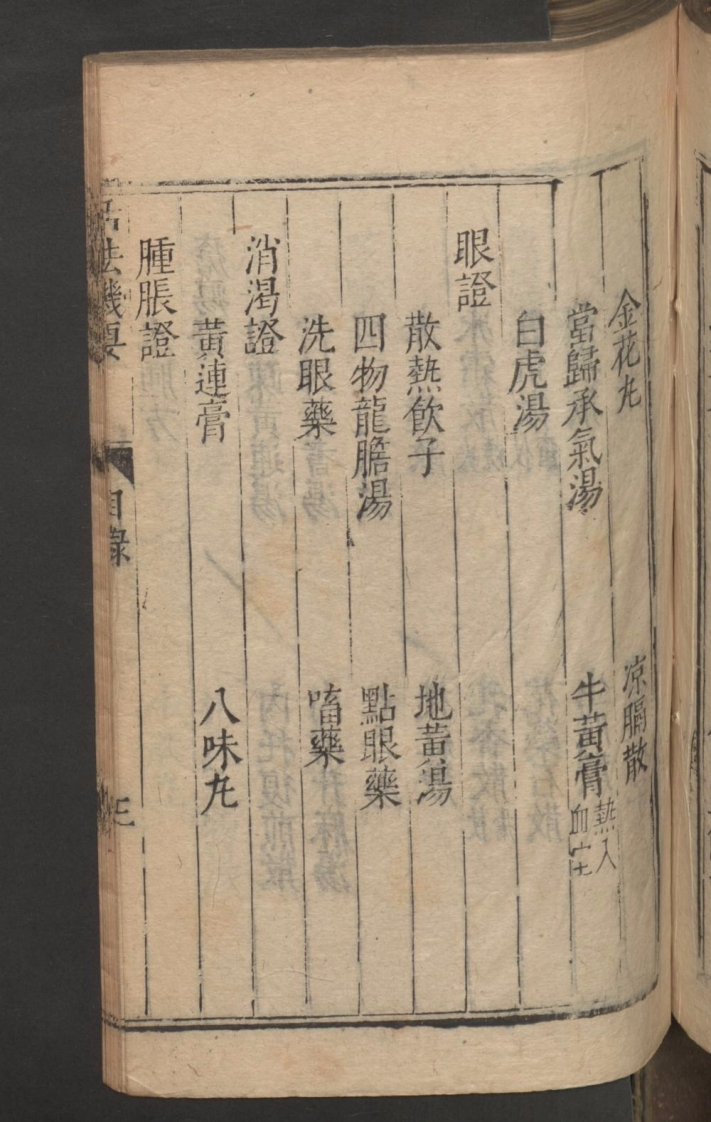 金花丸 涼膈散
當歸承氣湯 牛黃膏 熱入血室
白虎湯
眼證
散熱飲子 地黃湯
四物龍膽湯 點眼藥
洗眼藥 㗜藥
消渴證
黃連膏 八味丸
腫脹證
活法機要 目錄 三